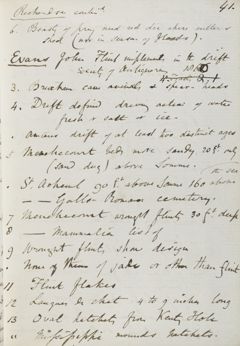 41.
6. Beasts of prey and red deer
shed (not in season of floods).
Evans John Flint implements in the drift
Society of Antiquaries
3. Brixham cave & spear heads
4. Drift defined drawn action of water
fresh & salt & ice.
drift of at least two distinct ages
5 Menchecourt beds more sandy 20 ft only
(sand dug) above Somme.
St Acheul 90 ft above Somme 160 above
— — Gallo Roman cemetery.
7 Menchecourt wrought flints 30 ft deep
8 — Mammalia
9 Wrought flints show design
None of them of jade or other than flint
11 Flint flakes
12 Langues de chat 4 to 9 inches long
13 Oval hatchets from Kent's Hole
Mississippi mounds hatchets.